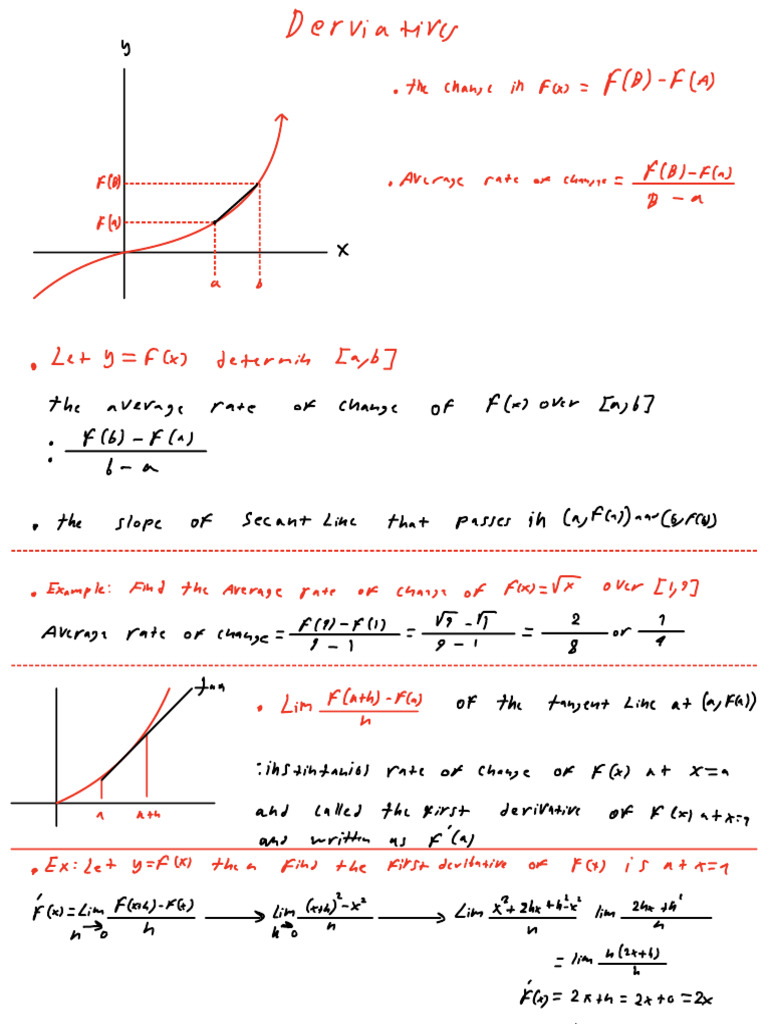 Derviatives
y
• the change in F(x) = F(B) - F(A)
F(B)
• Average rate of change = F(B) - F(a) / B - a
F(a)
x
a b
• Let y = F(x) determin [a,b]
the average rate of change of F(x) over [a,b]
: F(b) - F(a) / b - a
• the slope of secant Line that passes in (a,F(a)) and (b,F(b))
• Example: Find the Average rate of change of F(x) = √x over [1,9]
Average rate of change = F(9) - F(1) / 9 - 1 = √9 - √1 / 9 - 1 = 2 / 8 or 1 / 4
tan
• Lim F(a+h) - F(a) / h of the tangent Line at (a,F(a))
: instintanios rate of change of F(x) at x = a
a a+h
and called the first derivative of F(x) at x=a
and written as F'(a)
• Ex: Let y = F(x) then Find the First derivative of F(x) is at x = 1
F'(x) = Lim h→0 F(x+h) - F(x) / h → lim h→0 (x+h)² - x² / h → Lim x² + 2hx + h² - x² / h lim 2hx + h² / h
= lim h(2x+h) / h
F'(x) = 2x + h = 2x + 0 = 2x